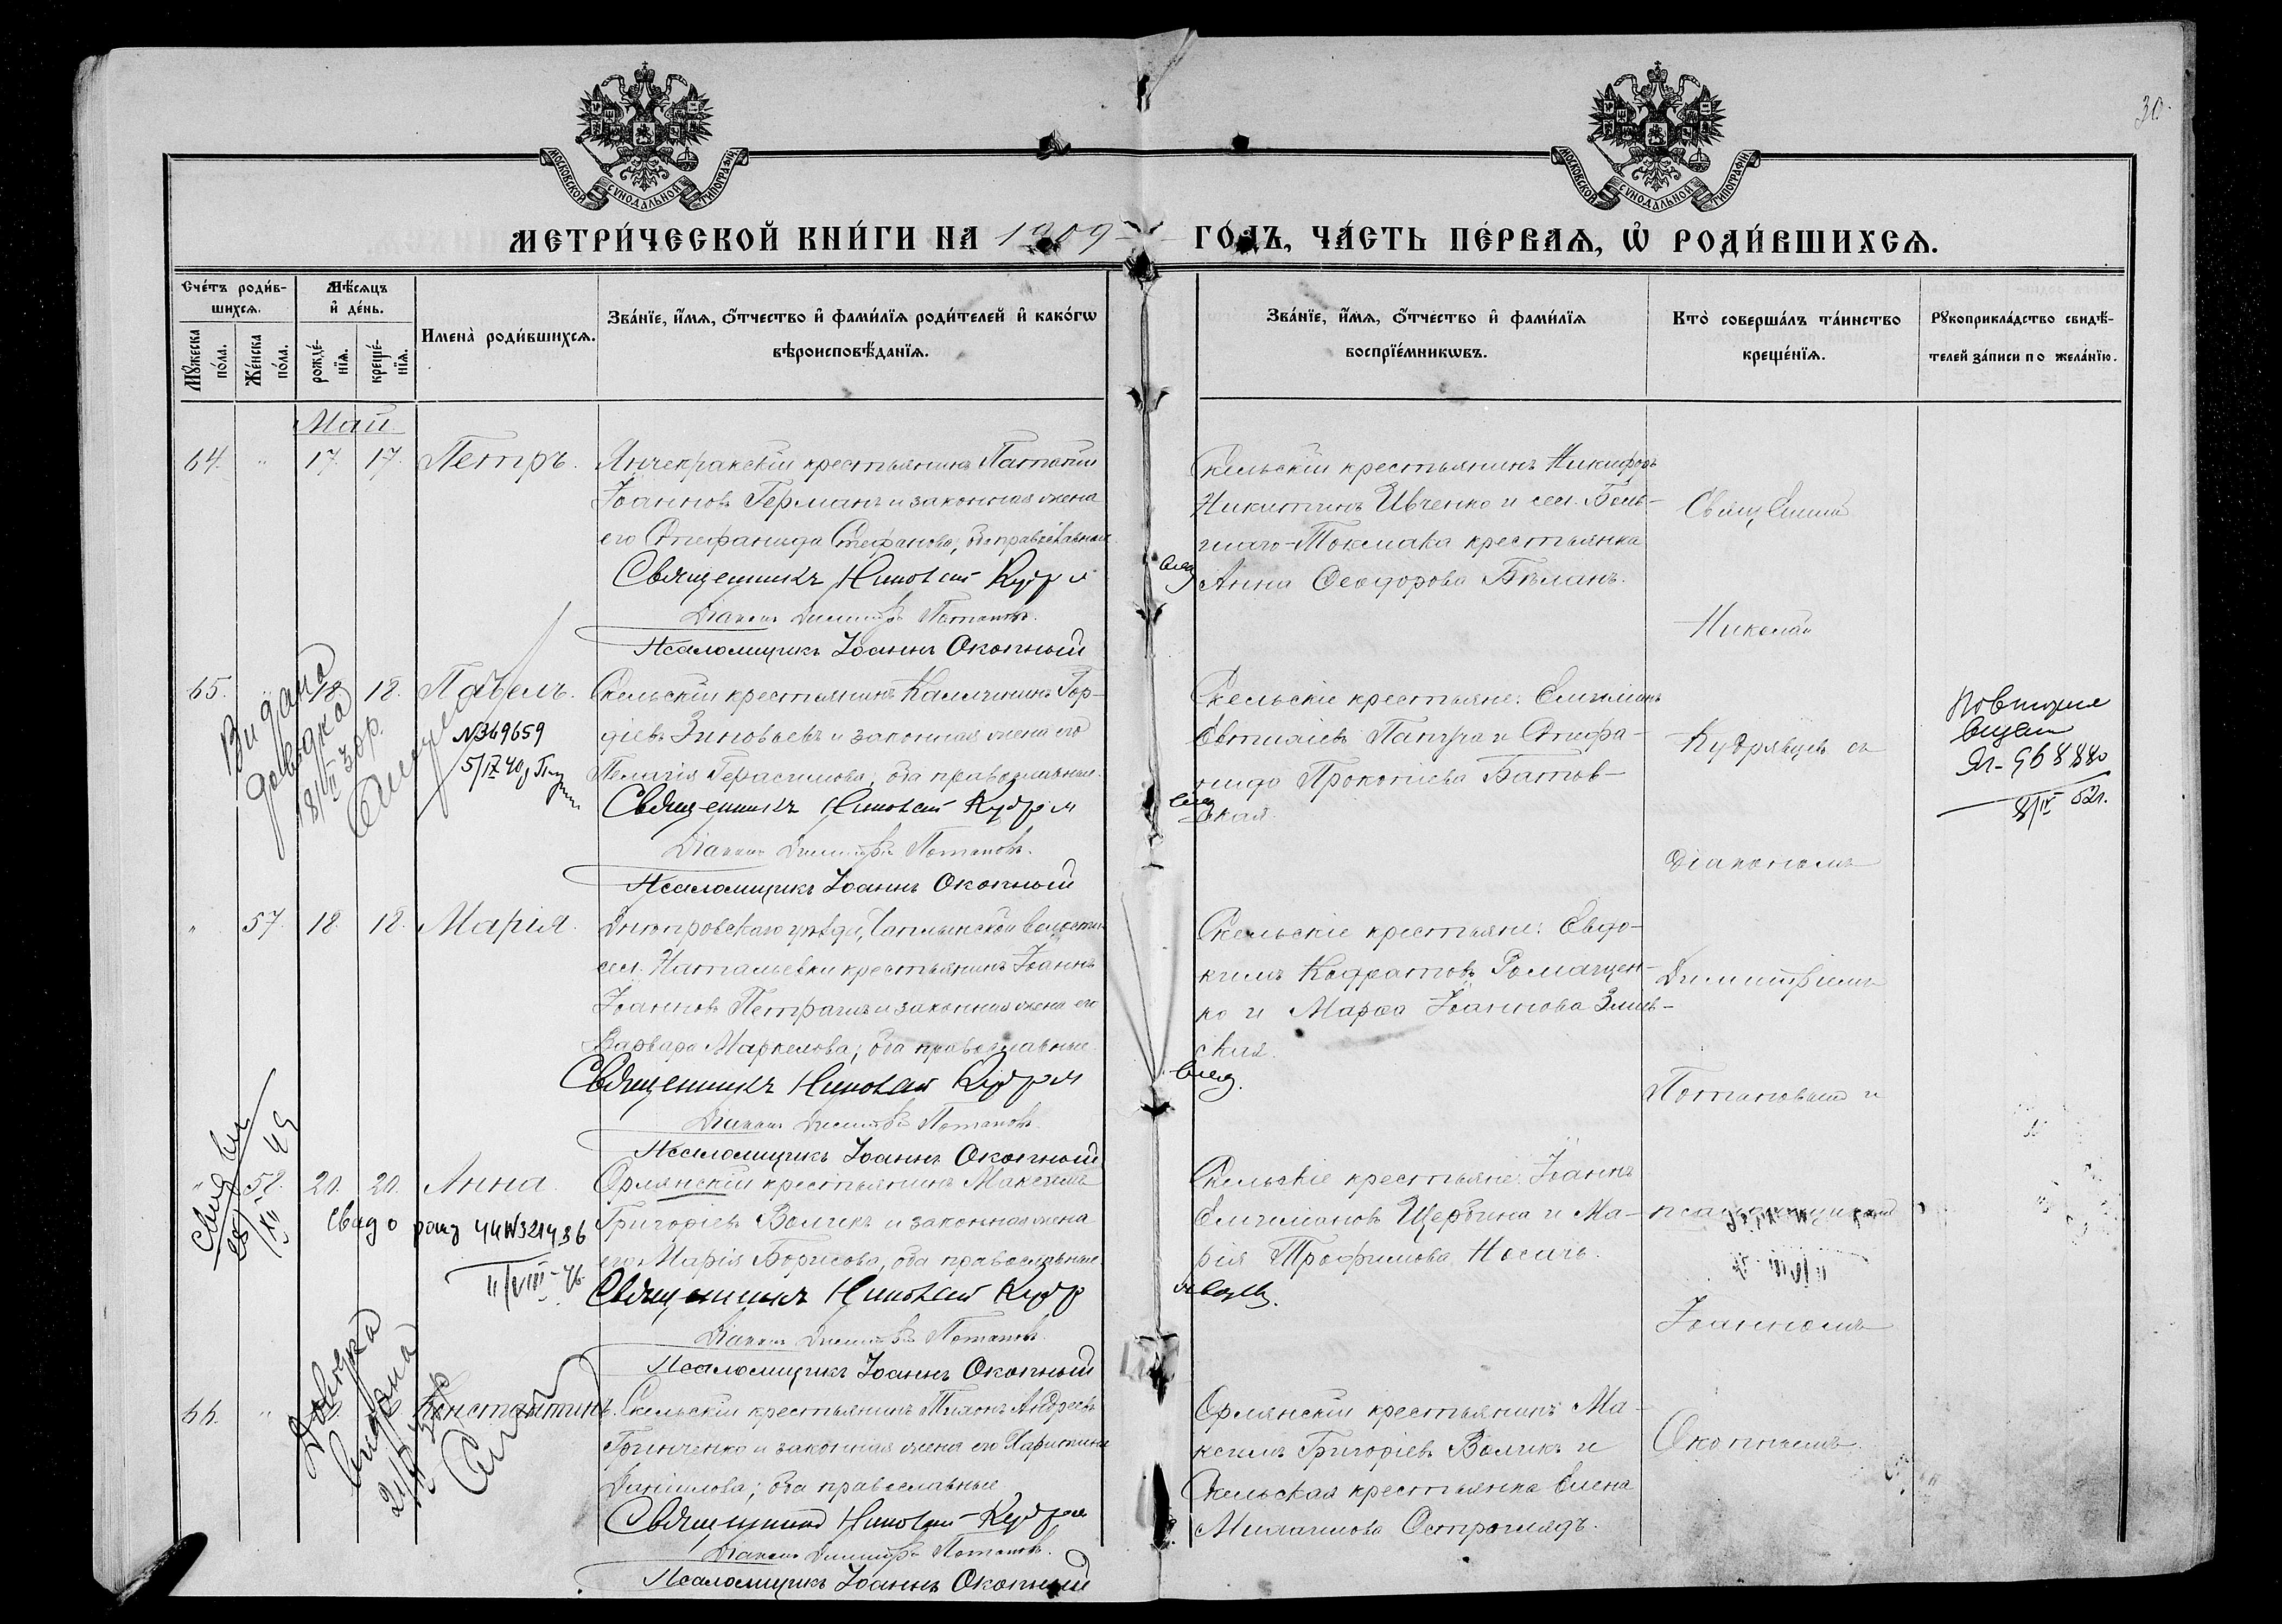 30.
МОСКОВСКОЙ СѴНОДАЛЬНОЙ ТИПОГРАФІИ
МОСКОВСКОЙ СѴНОДАЛЬНОЙ ТИПОГРАФІИ
МЕТРИ́ЧЕСКОЙ КНИ́ГИ НА 1909 ГО́ДЪ, ЧА́СТЬ ПЕ́РВАѦ, Ѡ҆ РОДИ́ВШИХСѦ.
Сче́тъ роди́в-
шихсѧ.
Мѣ́сѧцъ
и҆ де́нь.
Мꙋ́жеска
по́ла.
Же́нска
по́ла.
рожде́-
нїѧ.
креще́-
нїѧ.
Имена̀ роди́вшихсѧ.
Зва́нїе, и҆́мѧ, ѻ҆́тчество и҆ фами́лїѧ роди́телей и҆ како́гѡ
вѣроисповѣ́данїѧ.
Зва́нїе, и҆́мѧ, ѻ҆́тчество и҆ фами́лїѧ
воспрїе́мникѡвъ.
Кто̀ соверша́лъ та́инство
креще́нїѧ.
Рꙋкоприкла́дство свидѣ́-
телей за́писи по жела́нїю.
Май.
64. " 17. 17. Петръ.
Янчекракскій крестьянинъ Потапій
Іоанновъ Германъ и законная жена
его Стефанида Стефанова, оба православные
Священникъ Николай Кудря
Діаконъ Димитрій Потаповъ.
Псаломщикъ Іоаннъ Окопный
Скельскій крестьянинъ Никифоръ
Никитинъ Ивченко и сел. Боль-
шаго-Токмака крестьянка
Анна Ѳеодорова Бѣланъ.
65. " 18. 18. Павелъ.
Видана
довідка
18/VII 30р.
№369659
5/IX 40
Скельскій крестьянинъ Каллиникъ Гор-
діевъ Зиновьевъ и законная жена его
Пелагія Герасимова, оба православные.
Священникъ Николай Кудря
Діаконъ Димитрій Потаповъ.
Псаломщикъ Іоаннъ Окопный
Скельскіе крестьяне: Емиліанъ
Евтихіевъ Папуча и Стефа-
нида Прокопіева Батов-
ская.
Повторне
видан
968880
8/IV 52г.
" 57. 18. 18. Марія.
Днѣпровскаго уѣзда, Чаплынской волости
сел. Натальевки крестьянинъ Іоаннъ
Іоанновъ Петрашъ и законная жена его
Варвара Маркелова; оба православные.
Священникъ Николай Кудря
Діаконъ Димитрій Потаповъ.
Псаломщикъ Іоаннъ Окопный
Скельскіе крестьяне: Евдо-
кимъ Кодратовъ Романцен-
ко и Марѳа Іоаннова Злыв-
ская.
" 58. 20. 20. Анна.
Свид о рожд №321436
11/VIII-46
Орлянскій крестьянинъ Максимъ
Григоріевъ Воликъ и законная жена
его Марія Борисова, оба православные.
Священникъ Николай Кудр
Діаконъ Димитрій Потаповъ.
Псаломщикъ Іоаннъ Окопный
Скельскіе крестьяне: Іоаннъ
Емиліановъ Щербина и Ма-
рія Трофимова Носачь.
66. " Константинъ.
Довідка
видана
Скельскій крестьянинъ Тихонъ Андреевъ
Гринченко и законная жена его Харитина
Даніилова; оба православные
Священникъ Николай Кудря
Діаконъ Димитрій Потаповъ.
Псаломщикъ Іоаннъ Окопный
Орлянскій крестьянинъ Ма-
ксимъ Григоріевъ Воликъ и
Скельская крестьянка Елена
Михаилова Остроглядъ.
Священник
Николай
Кудрявцев съ
Діакономъ
Димитріемъ
Потаповымъ и
псаломщикомъ
Іоанномъ
Окопнымъ.